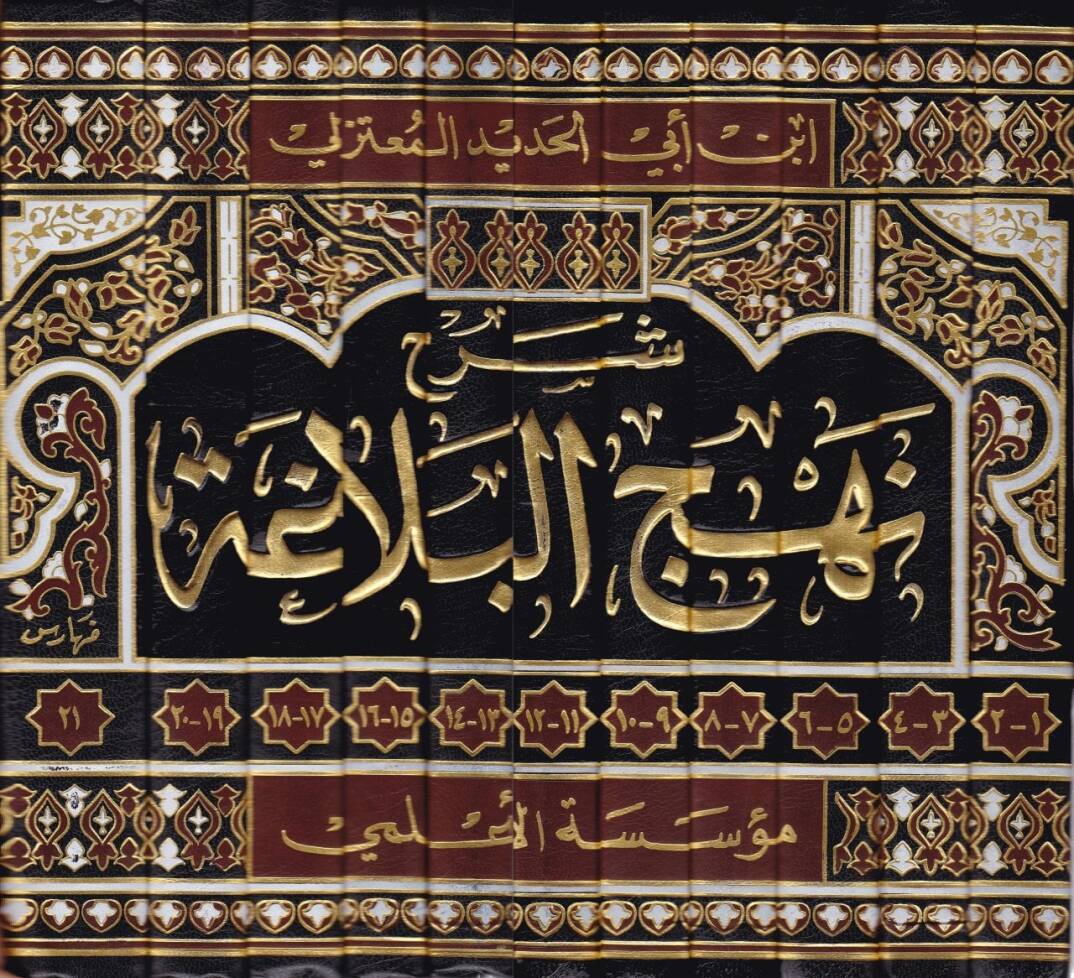 ابن أبي الحديد المعتزلي
شرح
نهج البلاغة
فهارس
١-٢ ٣-٤ ٥-٦ ٧-٨ ٩-١٠ ١١-١٢ ١٣-١٤ ١٥-١٦ ١٧-١٨ ١٩-٢٠ ٢١
مؤسسة الأعلمي